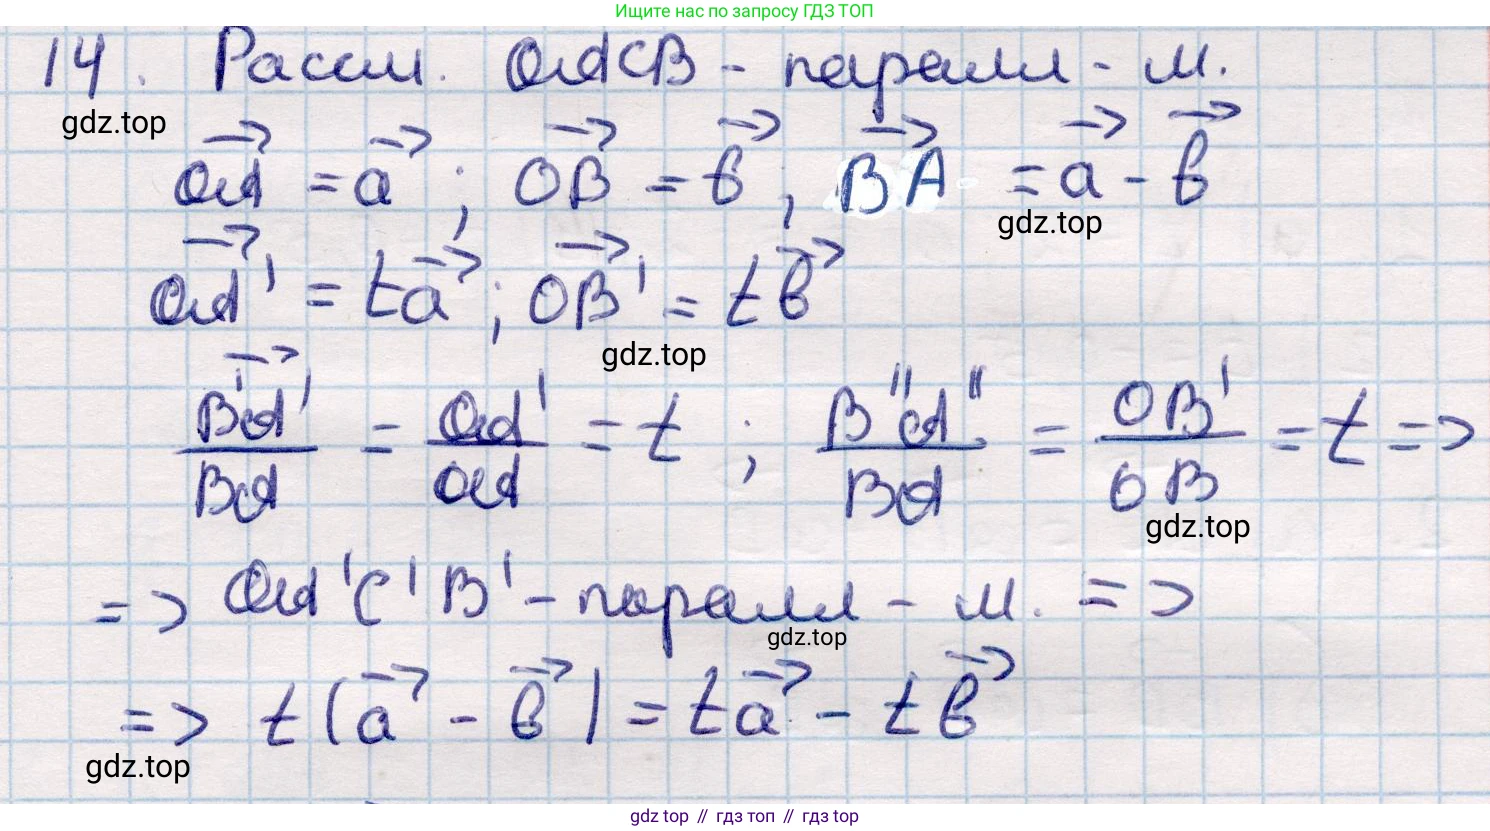 Ищите нас по запросу ГДЗ ТОП
14. Рассм. OACB - паралл-м.
gdz.top
OA→ = a→; OB→ = b→; BA→ = a→ - b→
gdz.top
OA'→ = ta→; OB'→ = tb→
gdz.top
B'A'→/BA = OA'/OA = t; B"A"/BA = OB'/OB = t =>
gdz.top
=> OA'C'B' - паралл-м. =>
gdz.top
=> t(a→ - b→) = ta→ - tb→
gdz.top
gdz top // гдз топ // гдз top